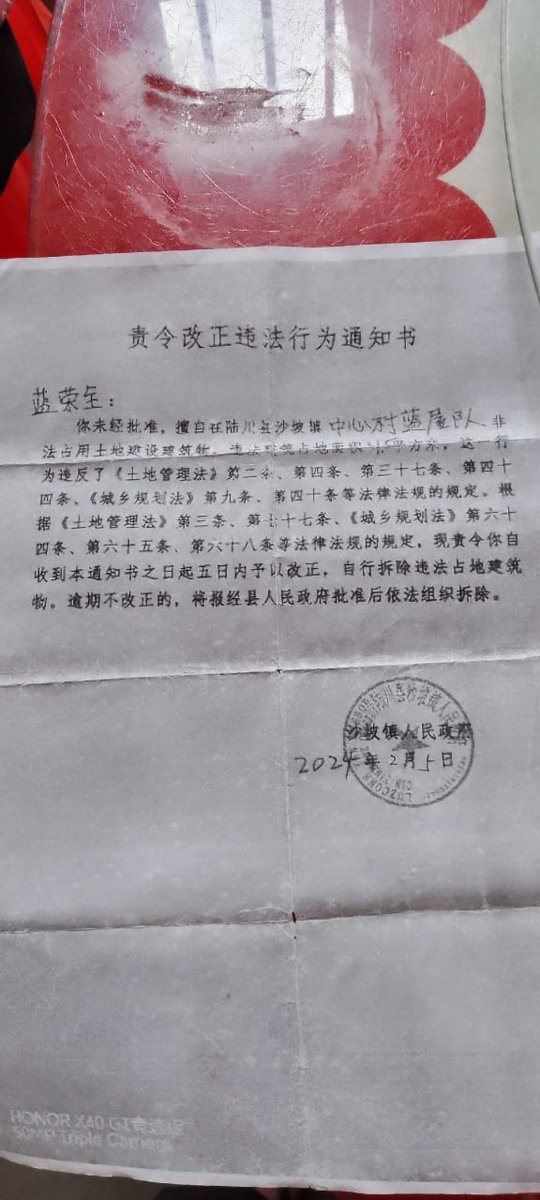 责令改正违法行为通知书
蓝荣生：
你未经批准，擅自在陆川县沙坡镇中心村蓝屋队非
法占用土地建设建筑物，违法建筑占地面积 平方米，这一行
为违反了《土地管理法》第二条、第四条、第三十七条、第四十
四条、《城乡规划法》第九条、第四十条等法律法规的规定。根
据《土地管理法》第三条、第七十七条、《城乡规划法》第六十
四条、第六十五条、第六十八条等法律法规的规定，现责令你自
收到本通知书之日起五日内予以改正，自行拆除违法占地建筑
物。逾期不改正的，将报经县人民政府批准后依法组织拆除。
沙坡镇人民政府
2024年2月5日
HONOR X40 GT竞速版
50MP Triple Camera